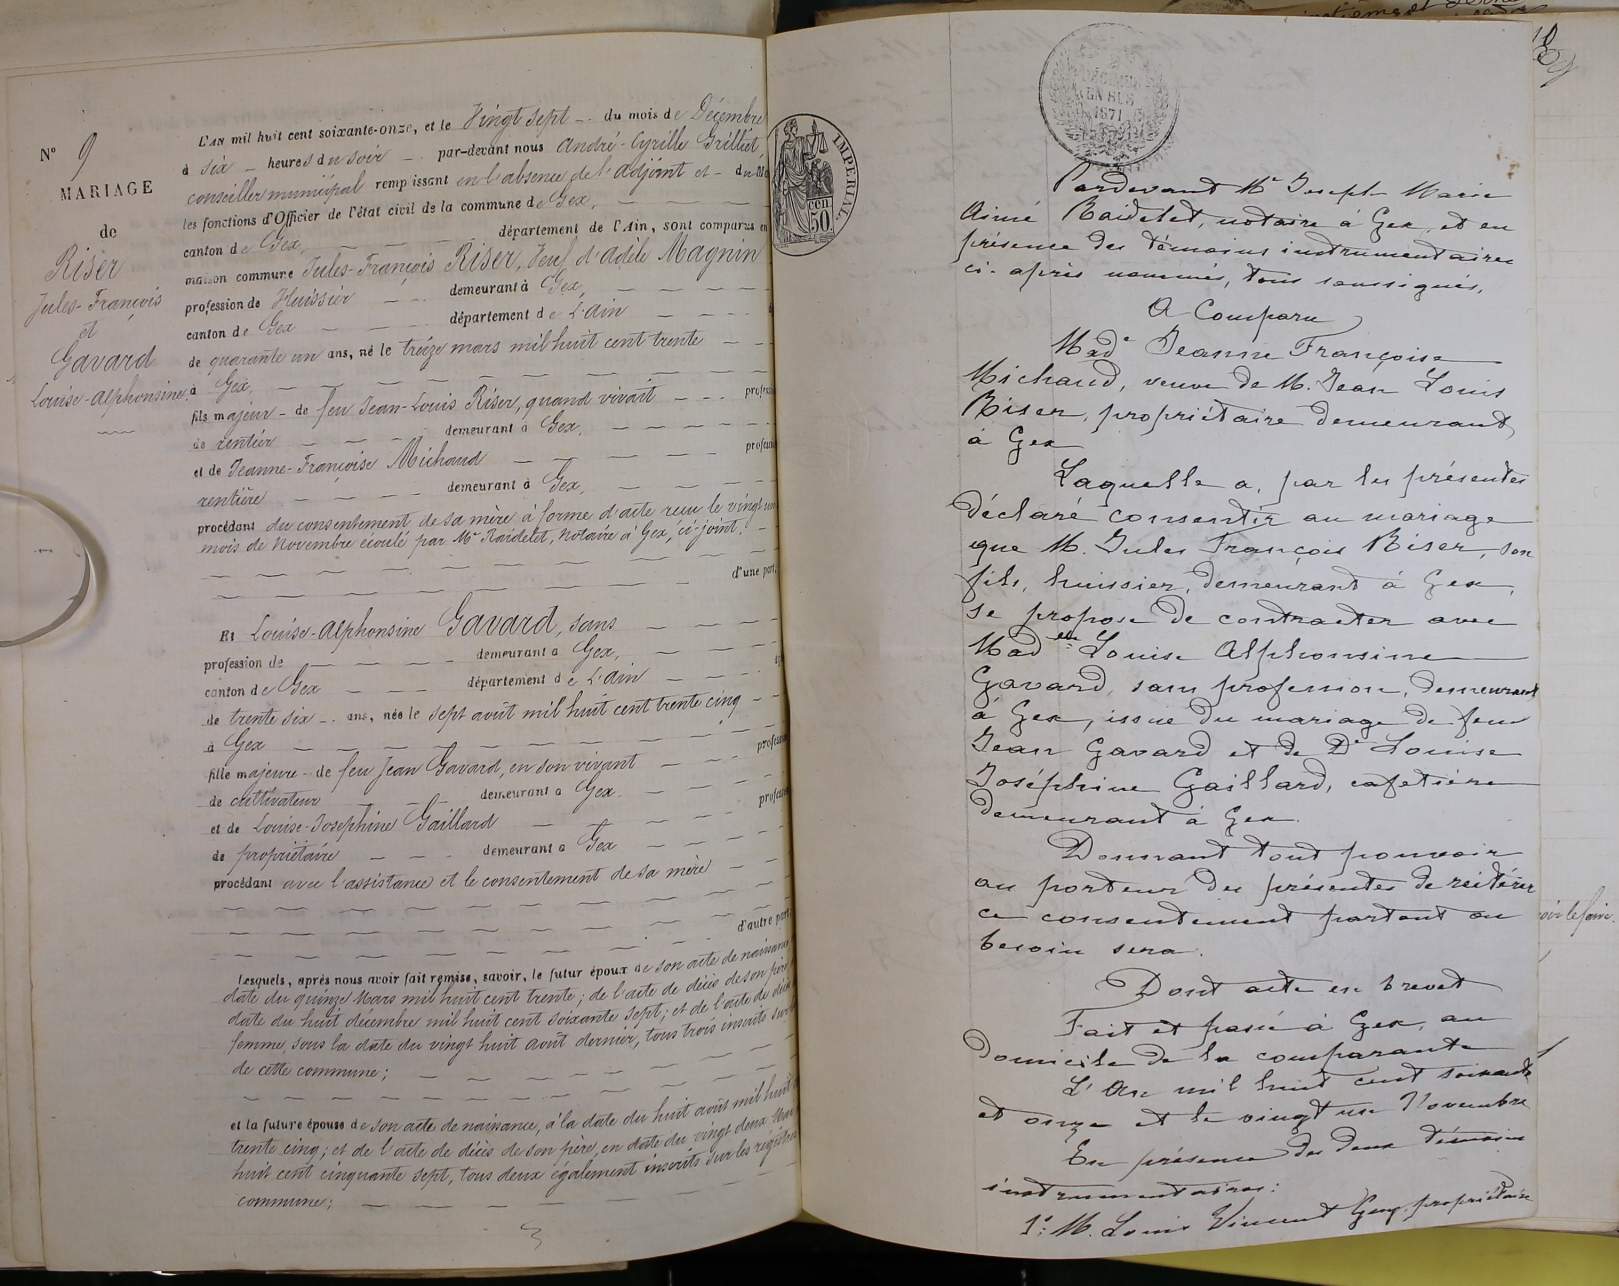 N° 9
MARIAGE
de
Riser
Jules-François
et
Gavard
Louise-Alphonsine
L'an mil huit cent soixante-onze, et le Vingt sept du mois de Décembre
à six heures du soir par-devant nous André-Cyrille Grilliet
conseiller municipal remplissant en l'absence de l'adjoint et du
les fonctions d'Officier de l'état civil de la commune de Gex,
canton de Gex, département de l'Ain, sont comparus en
maison commune Jules-François Riser, Veuf d'Adèle Magnin
profession de Huissier demeurant à Gex,
canton de Gex département de L'ain
de quarante un ans, né le treize mars mil huit cent trente
à Gex,
fils majeur de feu Jean-Louis Riser, quand vivait
de rentier demeurant à Gex,
et de Jeanne-Françoise Michaud
rentière demeurant à Gex,
procédant du consentement de sa mère à forme d'acte reçu le vingt un
mois de Novembre écoulé par Me Raidelet, Notaire à Gex, ci-joint.
d'une part,
Et Louise-Alphonsine Gavard, sans
profession de demeurant à Gex,
canton de Gex département de L'ain
de trente six ans, née le sept août mil huit cent trente cinq
à Gex
fille majeure de feu Jean Gavard, en son vivant
de cultivateur demeurant à Gex
et de Louise-Josephine Gaillard
de propriétaire demeurant à Gex
procédant avec l'assistance et le consentement de sa mère
d'autre part,
Lesquels, après nous avoir fait remise, savoir, le futur époux de son acte de naissance
date du quinze Mars mil huit cent trente; de l'acte de décès de son père
date du huit décembre mil huit cent soixante sept; et de l'acte de décès
femme, sous la date du vingt huit août dernier, tous trois inscrits sur
de cette commune;
et la future épouse de son acte de naissance, à la date du huit août mil huit
trente cinq; et de l'acte de décès de son père, en date du vingt deux Mai
huit cent cinquante sept, tous deux également inscrits sur les registres
commune;
IMPERIAL.
50 cen
EN SUS
1871
Pardevant Me Joseph Marie
Aimé Raidelet, notaire à Gex, et en
présence des témoins instrumentaires
ci-après nommés, tous soussignés,
A Comparu
Made Jeanne Françoise
Michaud, veuve de M. Jean Louis
Riser, propriétaire demeurant
à Gex
Laquelle a, par les présentes
déclaré consentir au mariage
que M. Jules François Riser, son
fils, huissier, demeurant à Gex,
se propose de contracter avec
Madelle Louise Alphonsine
Gavard, sans profession, demeurant
à Gex, issue du mariage de feu
Jean Gavard et de De Louise
Joséphine Gaillard, cafetière
demeurant à Gex.
Donnant tout pouvoir
au porteur des présentes de réitérer
ce consentement partout où
besoin sera.
Dont acte en brevet
Fait et passé à Gex, au
domicile de la comparante
L'An mil huit cent soixante
et onze et le vingt un Novembre
En présence des deux témoins
instrumentaires:
1° M. Louis Vincent Guy, propriétaire
oir le faire.